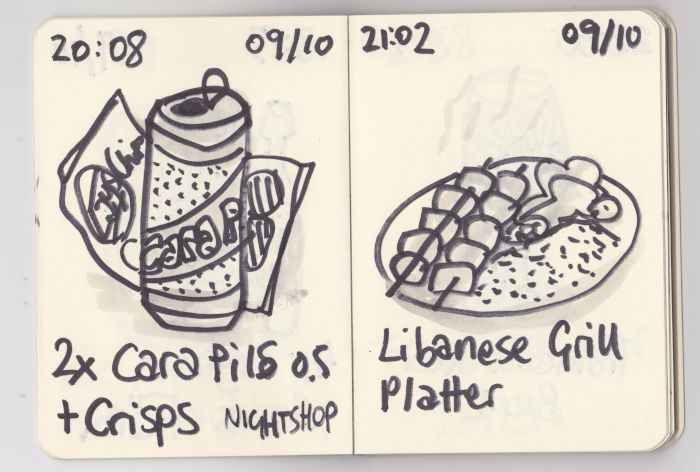 20:08 09/10
Cara P
2x Cara Pils 0.5
+ Crisps NIGHTSHOP
21:02 09/10
Libanese Grill
Platter